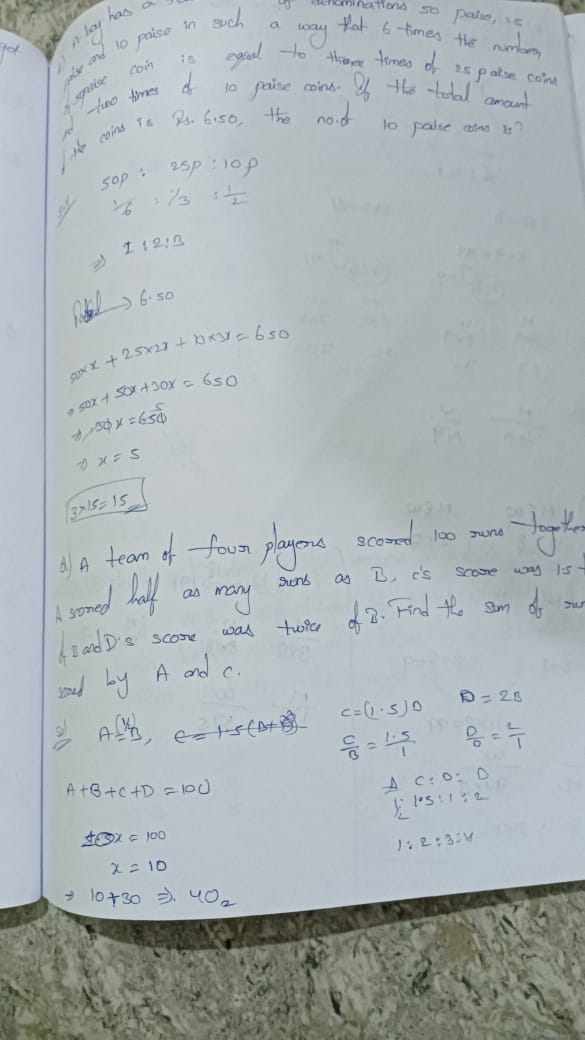 A boy has a denominations 50 paise, 25
paise and 10 paise in such a way that 6 times the number
of 50paise coin is equal to three times of 25 paise coins
and two times of 10 paise coins. If the total amount
of the coins is Rs. 6.50, the no.of 10 paise coins is?
50p : 25p : 10p
1/6 : 1/3 : 1/2
⇒ 1 : 2 : 3
Total → 6.50
50×x + 25×2x + 10×3x = 650
⇒ 50x + 50x + 30x = 650
⇒ 130x = 650
⇒ x = 5
3×15 = 15
Q) A team of four players scored 100 runs together
A scored half as many runs as B, c's score was 1.5
of B and D's score was twice of B. Find the sum of
scored by A and c.
Sol A = (1/2)B,
c = (1.5)B D = 2B
C/B = 1.5/1 D/B = 2/1
A+B+C+D = 100
1/2 : 1.5 : 1 : 2
x = 100
1 : 2 : 3 : 4
x = 10
⇒ 10+30 ⇒ 40